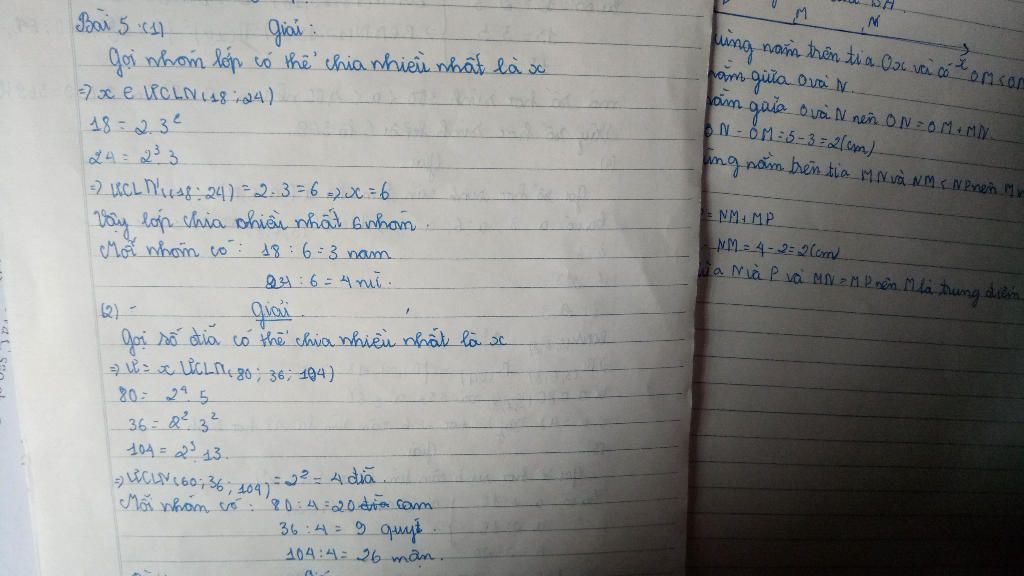 Bài 5:(1) Giải:
Gọi nhóm lớp có thể chia nhiều nhất là x
=> x ∈ ƯCLN(18;24)
18 = 2.3²
24 = 2³ 3
=> ƯCLN(18;24) = 2.3 = 6 => x = 6
Vậy lớp chia nhiều nhất 6 nhóm.
Mỗi nhóm có: 18 : 6 = 3 nam
24 : 6 = 4 nữ.
(2) - Giải.
Gọi số đĩa có thể chia nhiều nhất là x
=> Ư = x ƯCLN(80; 36; 104)
80 = 2⁴.5
36 = 2².3²
104 = 2³.13.
=> ƯCLN(60; 36; 104) = 2² = 4 đĩa.
Mỗi nhóm có: 80 : 4 = 20 đĩa cam
36 : 4 = 9 quýt.
104 : 4 = 26 mận.
M N
x
cùng nằm trên tia Ox và có OM < ON
nằm giữa O và N.
nằm giữa O và N nên ON = OM + MN.
ON - OM = 5 - 3 = 2(cm)
cùng nằm trên tia MN và NM < NP nên M
= NM + MP
- NM = 4 - 2 = 2(cm)
giữa N và P và MN = MP nên M là trung điểm